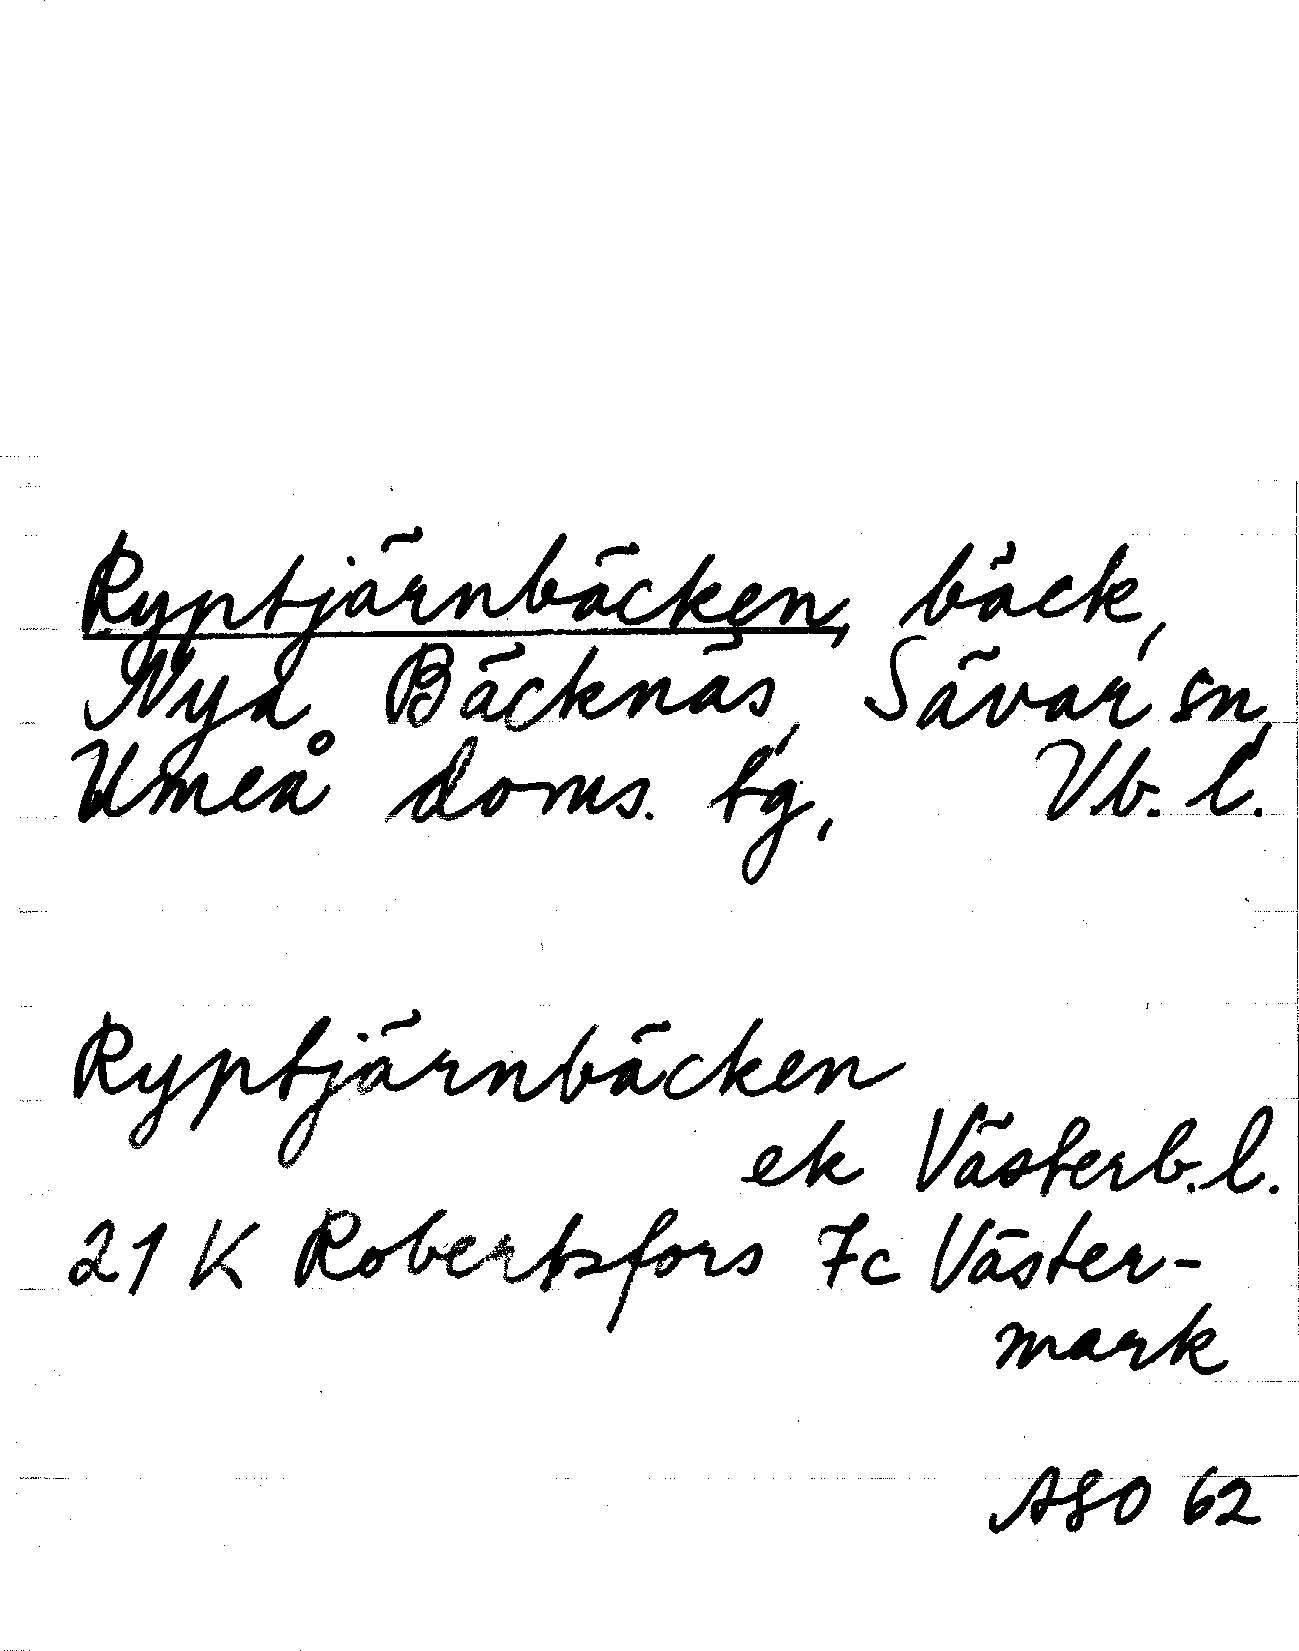 Ryptjärnbäcken, bäck,
Nya Bäcknäs, Sävar sn,
Umeå doms. tg, Vb. l.
Ryptjärnbäcken
ek Västerb. l.
21 K Robertsfors 7c Väster-
mark
ASO 62